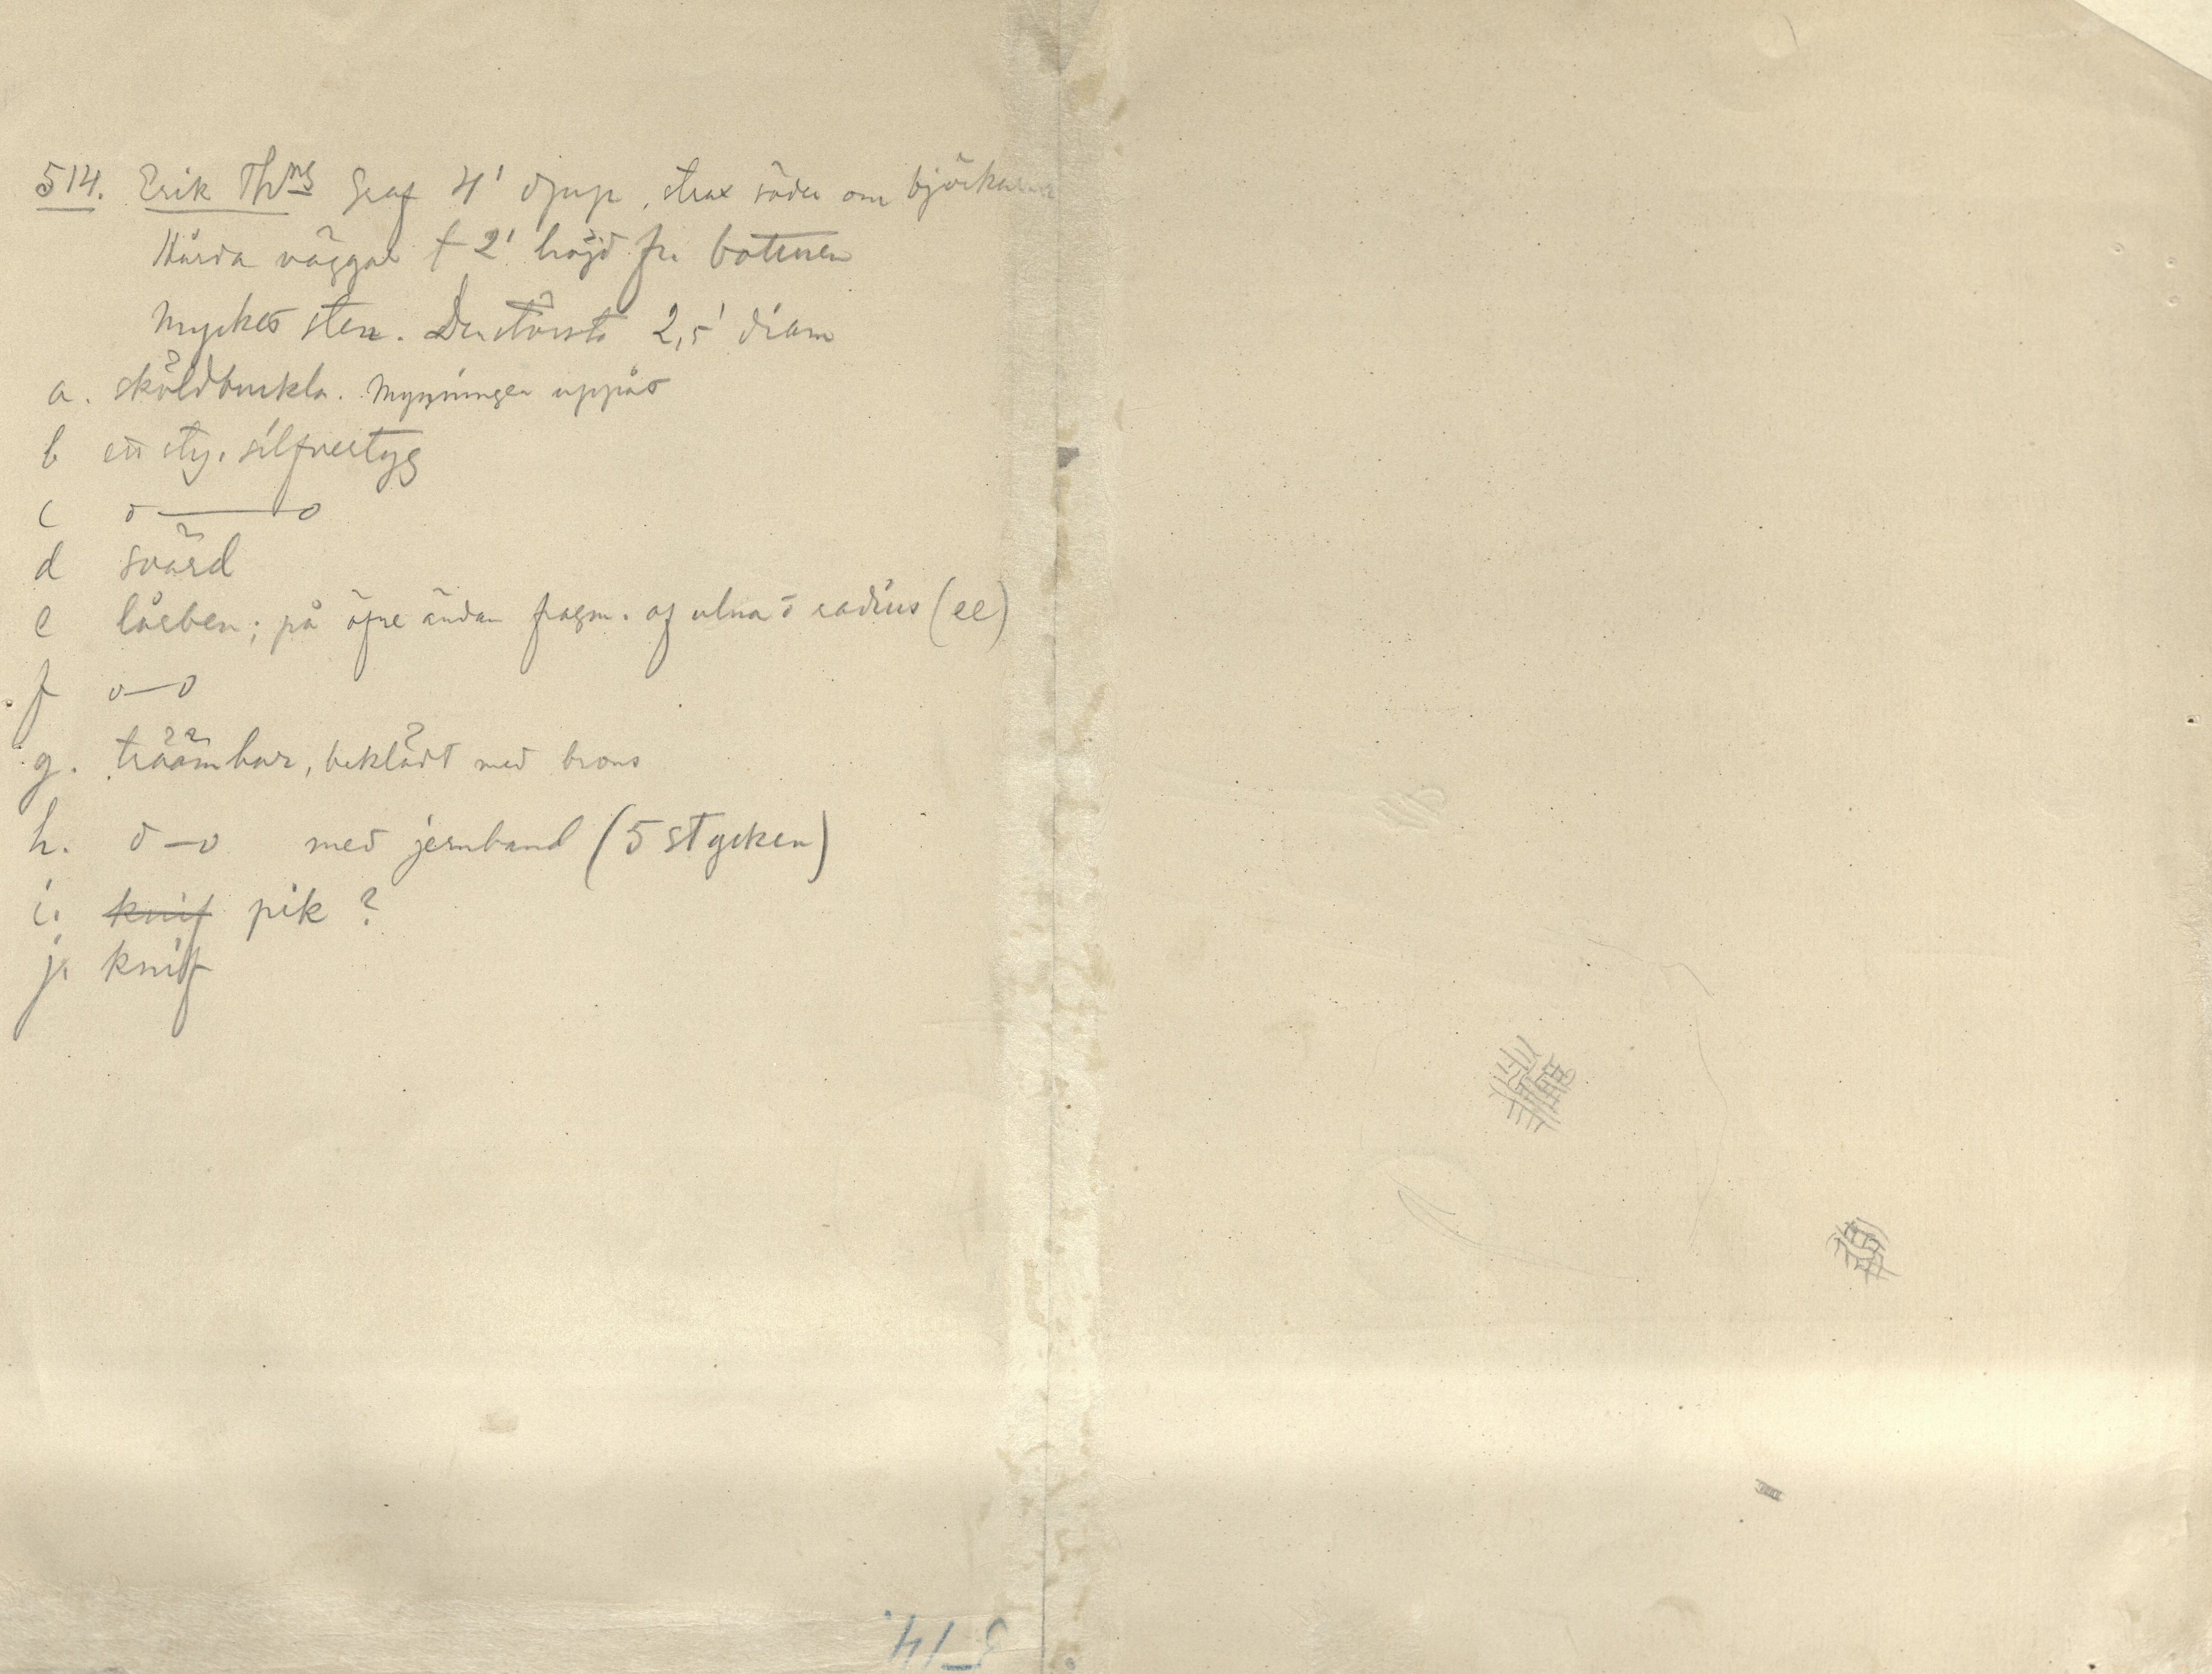 514. Erik Thns Graf 4' djup, strax söder om björkarna
Hårda väggar t 2' höjd fr. bottnen
Mycket sten. Den största 2,5' diam
a. sköldbuckla. Mynningen uppåt
b ett sty. silfvertyg
c o———o
d svärd
e lårben; på öfre ändan fragm. af ulna o radius (ee)
f o—o
g. träämbar, beklädt med brons
h. o—o med jernband (5 stycken)
i. knif pik ?
j. knif
514.